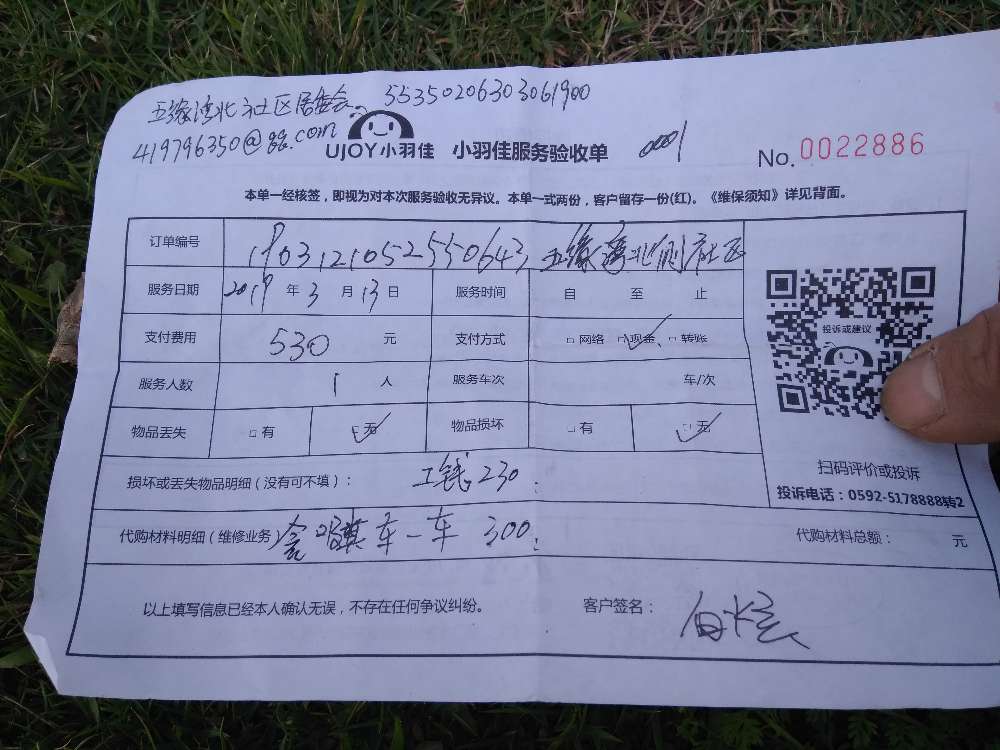 五缘湾北社区居委会 55350206303061900
419796350@qq.com
UJOY小羽佳 小羽佳服务验收单 0001 No.0022886
本单一经核签,即视为对本次服务验收无异议。本单一式两份,客户留存一份(红)。《维保须知》详见背面。
订单编号 190312105255550643 五缘湾北侧社区
服务日期 2019年3月13日 服务时间 自 至 止
支付费用 530 元 支付方式 □网络 □现金、□转账
投诉或建议
服务人数 1 人 服务车次 车/次
物品丢失 □有 □无 物品损坏 □有 □无
扫码评价或投诉
损坏或丢失物品明细(没有可不填): 工钱230
投诉电话:0592-5178888转2
代购材料明细(维修业务) 车一车 300 代购材料总额: 元
以上填写信息已经本人确认无误,不存在任何争议纠纷。 客户签名: